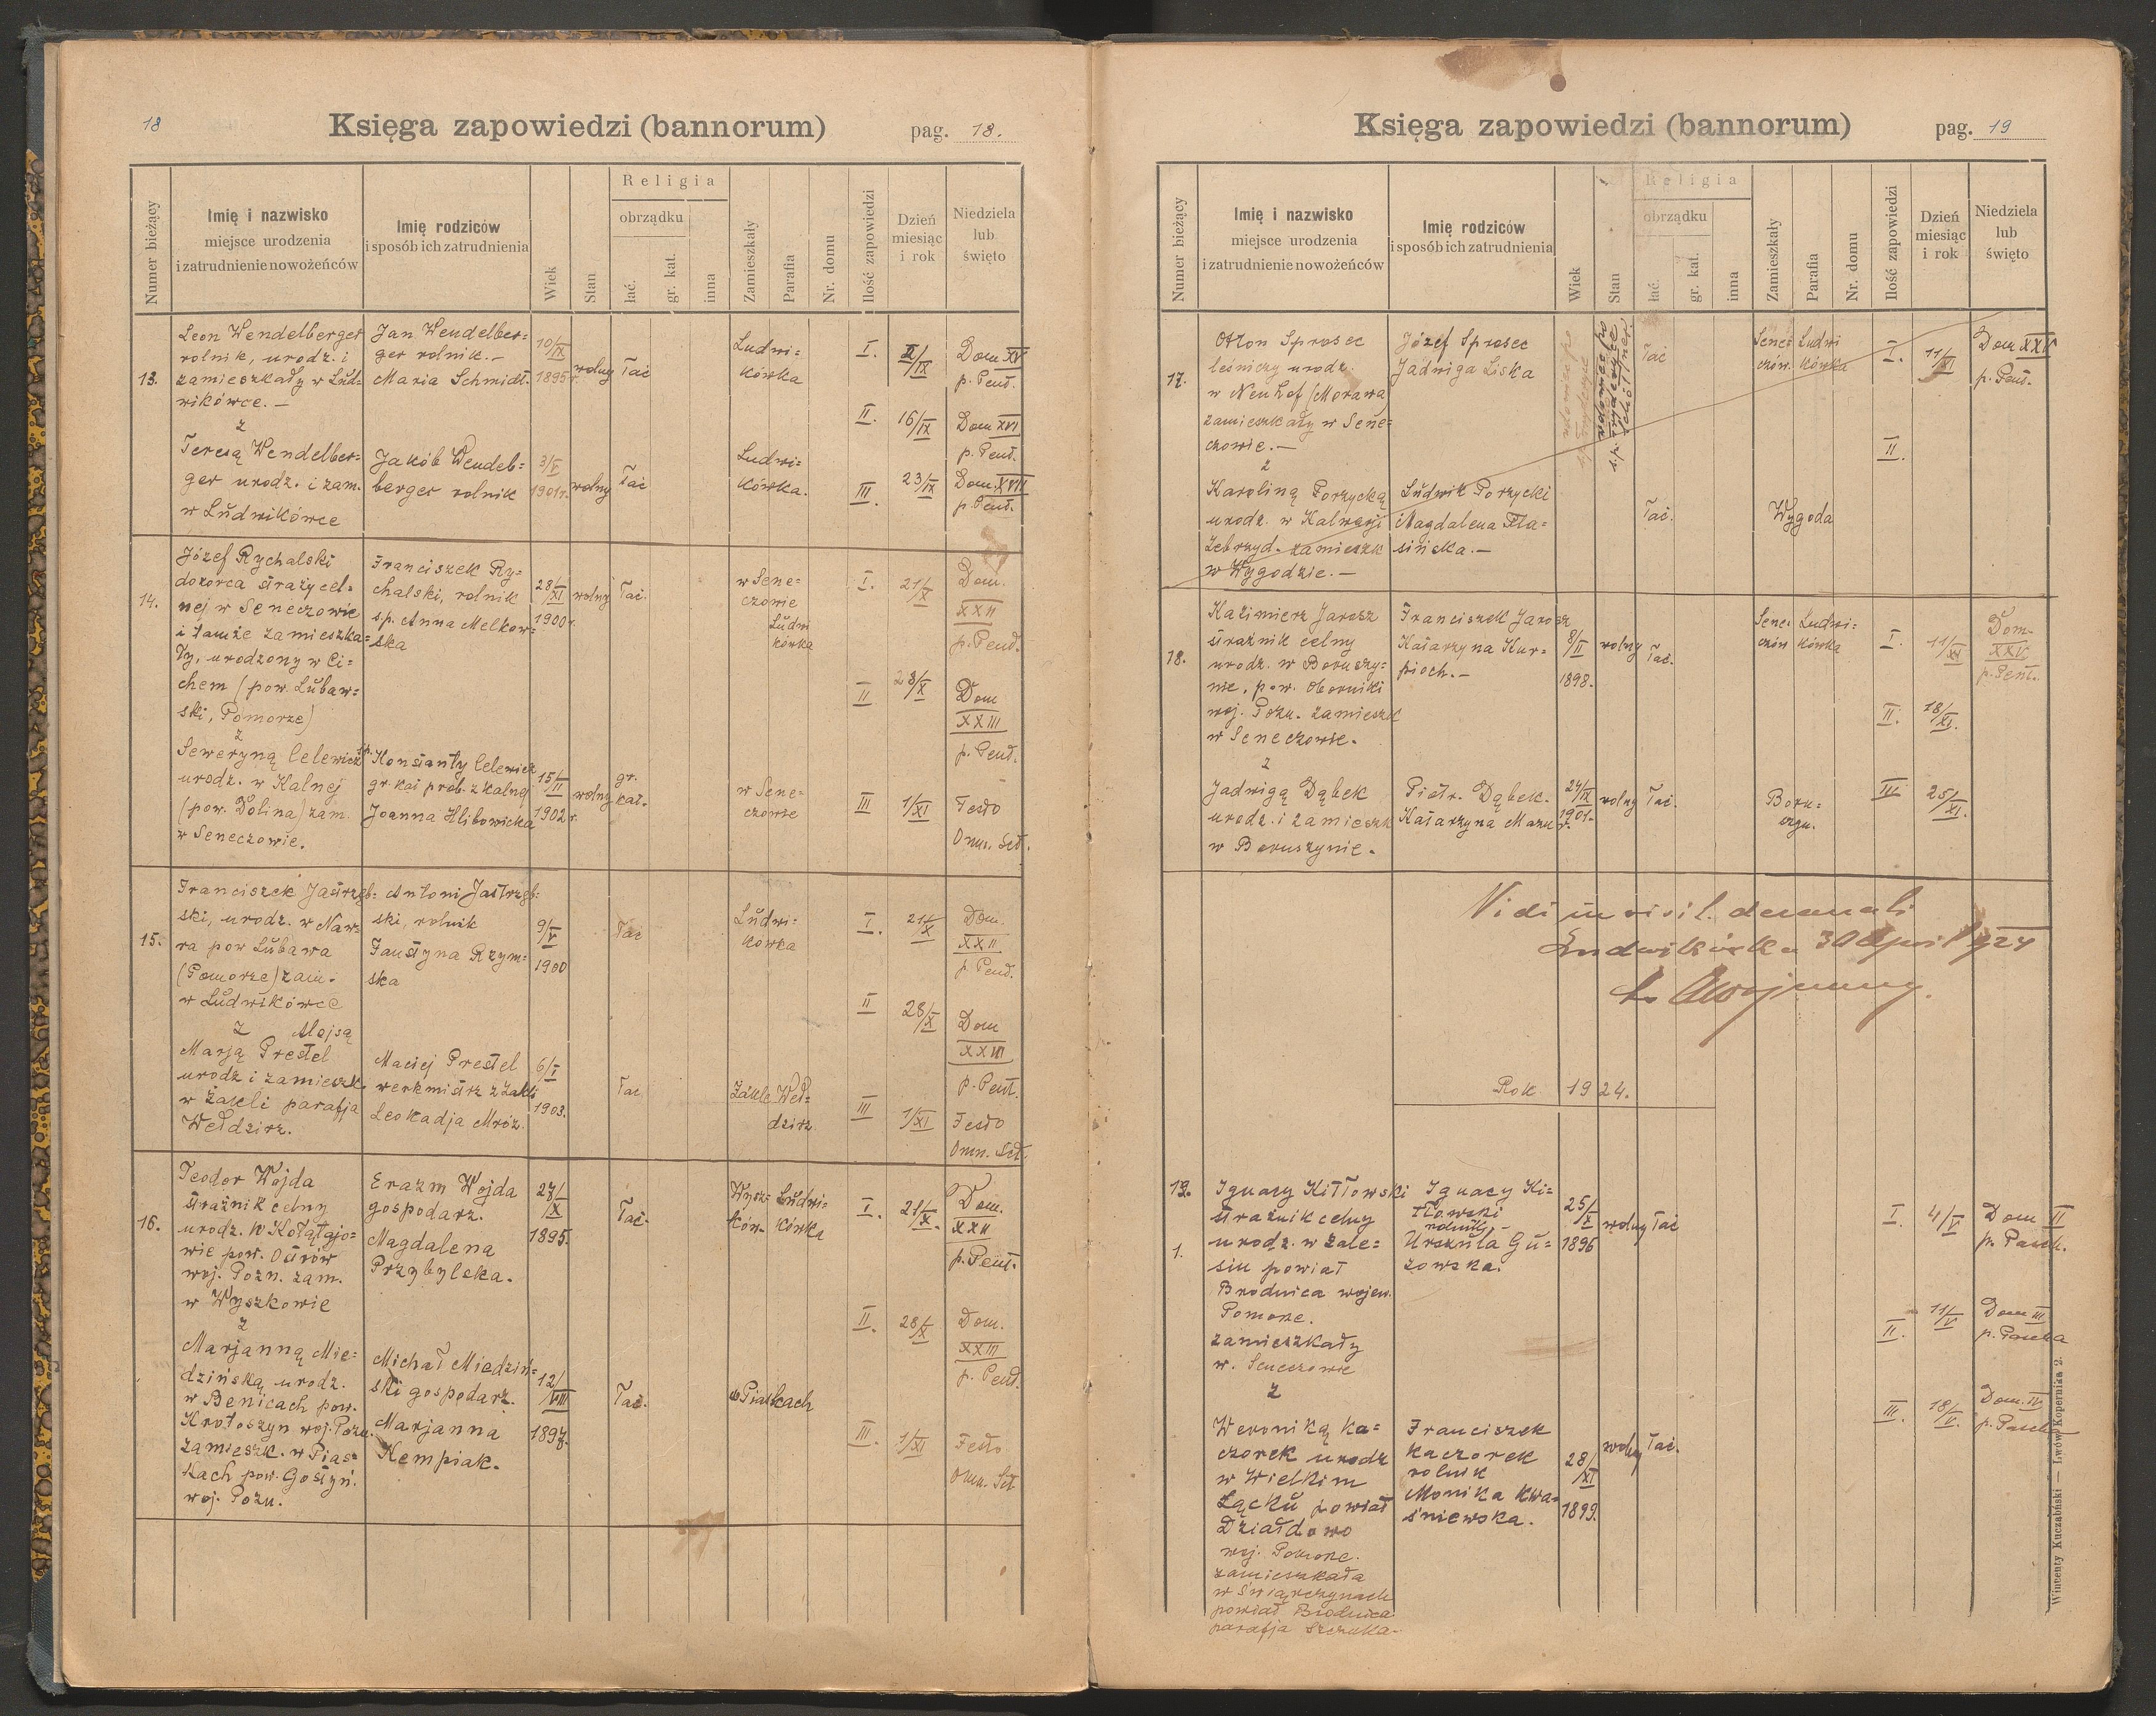 18
Księga zapowiedzi (bannorum)
pag. 18.
Numer bieżący
Imię i nazwisko
miejsce urodzenia
i zatrudnienie nowożeńców
Imię rodziców
i sposób ich zatrudnienia
Wiek
Stan
Religia
obrządku
łać.
gr. kat.
inna
Zamieszkały
Parafia
Nr. domu
Ilość zapowiedzi
Dzień
miesiąc
i rok
Niedziela
lub
święto
13.
Leon Wendelberger
rolnik, urodz. i
zamieszkały w Lud-
wikówce. —
z
Teresą Wendelber-
ger urodz. i zam.
w Ludwikówce
Jan Wendelber-
ger rolnik. —
Maria Schmidt.
Jakób Wendel-
berger rolnik
10/IX
1895 r.
wolny
łać
3/V
1901 r.
wolny
łać
Ludwi-
kówka
Ludwi-
kówka.
I.
/IX
Dom XV
p. Pent.
II.
16/IX
Dom XVI
p. Pent.
III.
23/IX
Dom. XVII
p. Pent.
14.
Józef Rychalski
dozorca straży cel-
nej w Seneczowie
i tamże zamieszka-
ły, urodzony w Ci-
chem (pow. Lubaw-
ski, Pomorze)
z
Seweryną Celewicz
urodz. w Kalnej
(pow. Dolina) zam.
w Seneczowie.
Franciszek Ry-
chalski, rolnik
s.p. Anna Melkow-
ska
s.p. Konstanty Celewicz
gr. kat. prob. z Kalnej
Joanna Hlibowicka
28/XI
1900 r.
wolny
łać.
15/II
1902 r.
wolny
gr.
kat.
w Sene-
czowie
Ludwi
kówka
w Sene-
czowie
I.
21/X
Dom.
XXII
p. Pent.
II
28/X
Dom
XXIII
p. Pent.
III
1/XI
Festo
Omn. Sct.
15.
Franciszek Jastrzęb-
ski, urodz. w Naw-
ra pow Lubawa
(Pomorze) zam.
w Ludwikówce
z Alojsą
Marją Prestel
urodz i zamieszk.
w Żakli parafja
Wełdzirz.
Antoni Jastrzęb-
ski, rolnik
Faustyna Rzym-
ska
Maciej Prestel
werkmistrz z Żakli
Leokadja Mróz.
9/V
1900
łać
6/I
1903.
łać
Ludwi-
kówka
Żakle Weł-
dzirz
I.
21/X
Dom.
XXII
p. Pent.
II
28/X
Dom
XXIII
p. Pent.
III
1/XI
Festo
Omn. Sct.
16.
Teodor Wojda
strażnik celny
urodz. w Kołątajo-
wie pow. Ostrów
woj. Pozn. zam.
w Wyszkowie
z
Marjanną Mie-
dzińską urodz.
w Benicach pow.
Krotoszyn woj. Pozn.
zamieszk. w Pias-
kach pow. Gostyń.
woj. Pozn.
Erazm Wojda
gospodarz.
Magdalena
Przybylska.
Michał Miedziń-
ski gospodarz.
Marjanna
Kempiak.
27/X
1895.
łać.
12/VIII
1897.
łać.
Wysz-
ków.
Ludwi-
kówka
w Piaskach
I.
21/X.
Dom.
XXII
p. Pent.
II.
28/X
Dom.
XXIII
p. Pent.
III.
1/XI
Festo.
Omn. Sct
Księga zapowiedzi (bannorum)
pag. 19
Numer bieżący
Imię i nazwisko
miejsce urodzenia
i zatrudnienie nowożeńców
Imię rodziców
i sposób ich zatrudnienia
Wiek
Stan
Religia
obrządku
łać.
gr. kat.
inna
Zamieszkały
Parafia
Nr. domu
Ilość zapowiedzi
Dzień
miesiąc
i rok
Niedziela
lub
święto
17.
Otton Sprosec
leśniczy urodz.
w Neuhof (Morawa
zamieszkały w Sene-
czowie. —
z
Karoliną Porzycką
urodz. w Kalwarji
Zebrzyd. zamieszk
w Wygodzie. —
Józef Sprosec
Jadwiga Liska
Ludwik Porzycki
Magdalena Fla-
sińska. —
wdowiec po
s.p. Fryderyce
łać
łać.
Sene-
czów.
Ludwi
kówka
Wygoda
I.
11/XI
Dom XXV
p. Pent.
II.
18.
Kazimierz Jarosz
strażnik celny
urodz. w Boruszy-
nie, pow. Oborniki
woj. Pozn. zamieszk
w Seneczowie.
z
Jadwigą Dąbek
urodz. i zamieszk
w Boruszynie.
Franciszek Jarosz
Katarzyna Kur-
pioch. —
Piotr. Dąbek.
Katarzyna Mazur
8/II
1898.
wolny
łać.
24/IX
1901.
r.
wolny
łać.
Sene-
czów
Ludwi-
kówka
Boru-
szyn.
I.
11/XI
Dom.
XXV
p. Pent.
II.
18/XI.
III
25/XI.
Vidi in visit. decanali
Ludwikówka 30 April 1924
Rok 1924.
19.
1.
Ignacy Kitłowski
strażnik celny
urodz. w Zale-
siu powiat
Brodnica wojew.
Pomorze.
zamieszkały
w. Seneczowie
z
Weroniką Ka-
czorek urodz
w Wielkim
Łącku powiat
Działdowo
woj. Pomorze.
zamieszkała
w Świączynach
powiat Brodnica
parafja Szczuka.
Ignacy Ki-
tłowski
rolnik, —
Urszula Gu-
zowska.
Franciszek
Kaczorek
rolnik
Monika Kwa-
śniewska.
25/X
1896
wolny
łać
28/XI
1899.
wolny
łać.
I.
4/V
Dom II
p. Pasch.
II.
11/V
Dom III
p. Pascha
III.
18/V.
Dom. IV
p. Pascha
Wincenty Kuczabiński — Lwów, Kopernika 2.